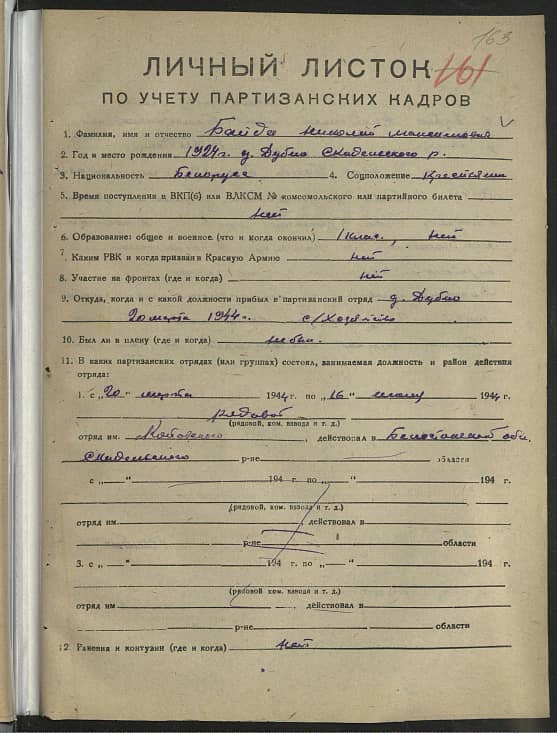 163
ЛИЧНЫЙ ЛИСТОК 161
ПО УЧЕТУ ПАРТИЗАНСКИХ КАДРОВ
1. Фамилия, имя и отчество Байда Николай Максимович
2. Год и место рождения 1924 г. д. Дубно Скидельского р.
3. Национальность Белорусс 4. Соцположение Крестьянин
5. Время поступления в ВКП(б) или ВЛКСМ № комсомольского или партийного билета
нет
6. Образование: общее и военное (что и когда окончил) 1 клас., нет
7. Каким РВК и когда призван в Красную Армию нет
8. Участие на фронтах (где и когда) нет
9. Откуда, когда и с какой должности прибыл в партизанский отряд д. Дубно
20 марта 1944 г. с/хозяйство
10. Был ли в плену (где и когда) не был.
11. В каких партизанских отрядах (или группах) состоял, занимаемая должность и район действия
отряда:
1. с „20" марта 1944 г. по „16" 1944 г.
рядовой
(рядовой, ком. взвода и т. д.)
отряд им. Котовского, действовал в Белостокской обл.
Скидельского р-не области
с „ " 194 г. по „ " 194 г.
(рядовой, ком. взвода и т. д.)
отряд им , действовал в
р-не области
3. с „ " 194 г. по „ " 194 г.
(рядовой ком. взвода и т. д.)
отряд им , действовал в
р-не области
12. Ранения и контузии (где и когда) нет